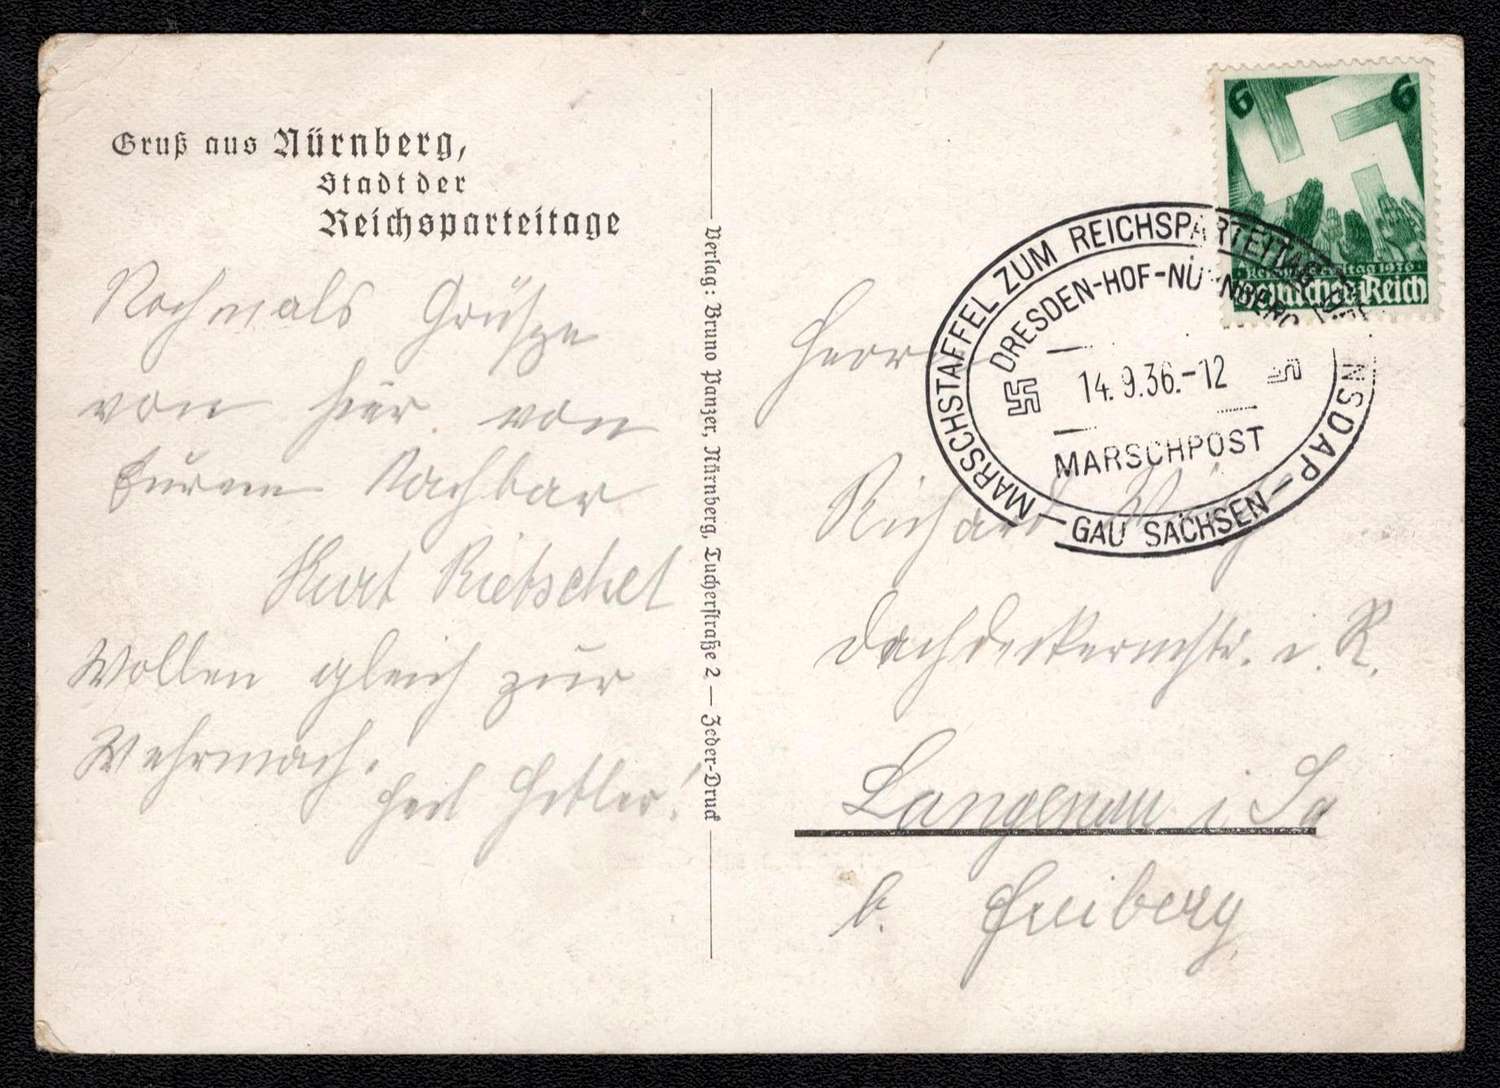 Gruß aus Nürnberg,
Stadt der
Reichsparteitage
Nochmals Grüsze
von hier. von
Eurem Nachbar
Kurt Rietschel
Wollen gleich zur
Wehrmach.
Heil Hitler!
Verlag: Bruno Panzer, Nürnberg, Tucherstraße 2 — Zeder-Druck
6 6
Reichsparteitag 1936
Deutsches Reich
MARSCHSTAFFEL ZUM REICHSPARTEITAG NSDAP — GAU SACHSEN —
DRESDEN-HOF-NÜRNBERG
14.9.36.-12
MARSCHPOST
Herrn
Richard
Dachdeckermstr. i. R.
Langenau i Sa
b. Freiberg.